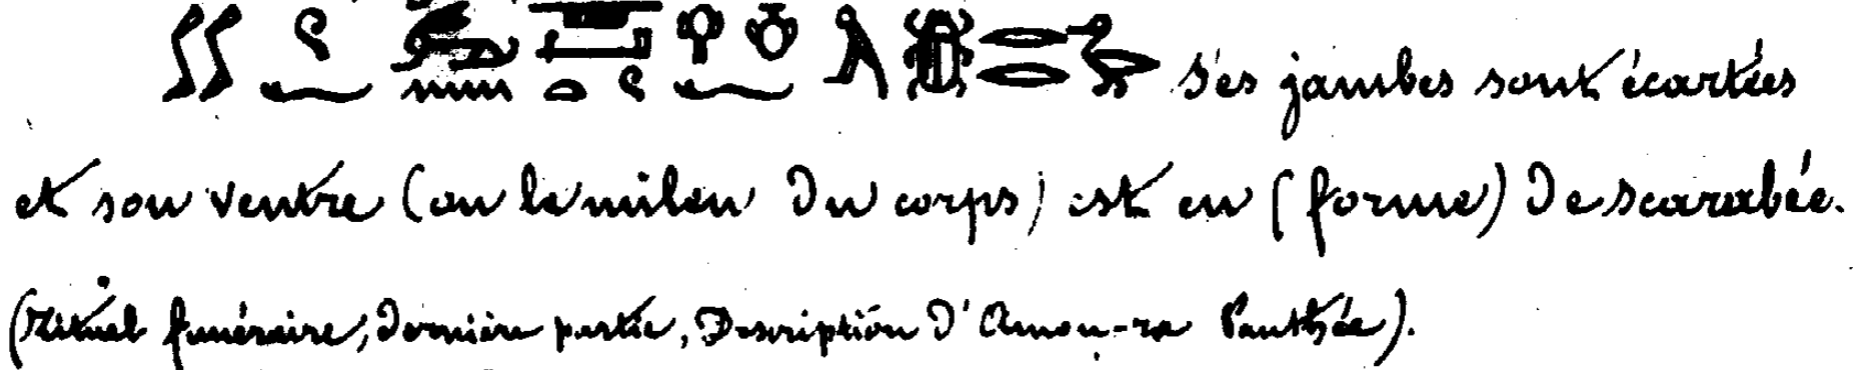 Ses jambes sont écartées
et son ventre (ou le milieu du corps) est en (forme) de scarabée.
(Rituel funéraire, dernière partie, Description d'Amon-ra Panthée).